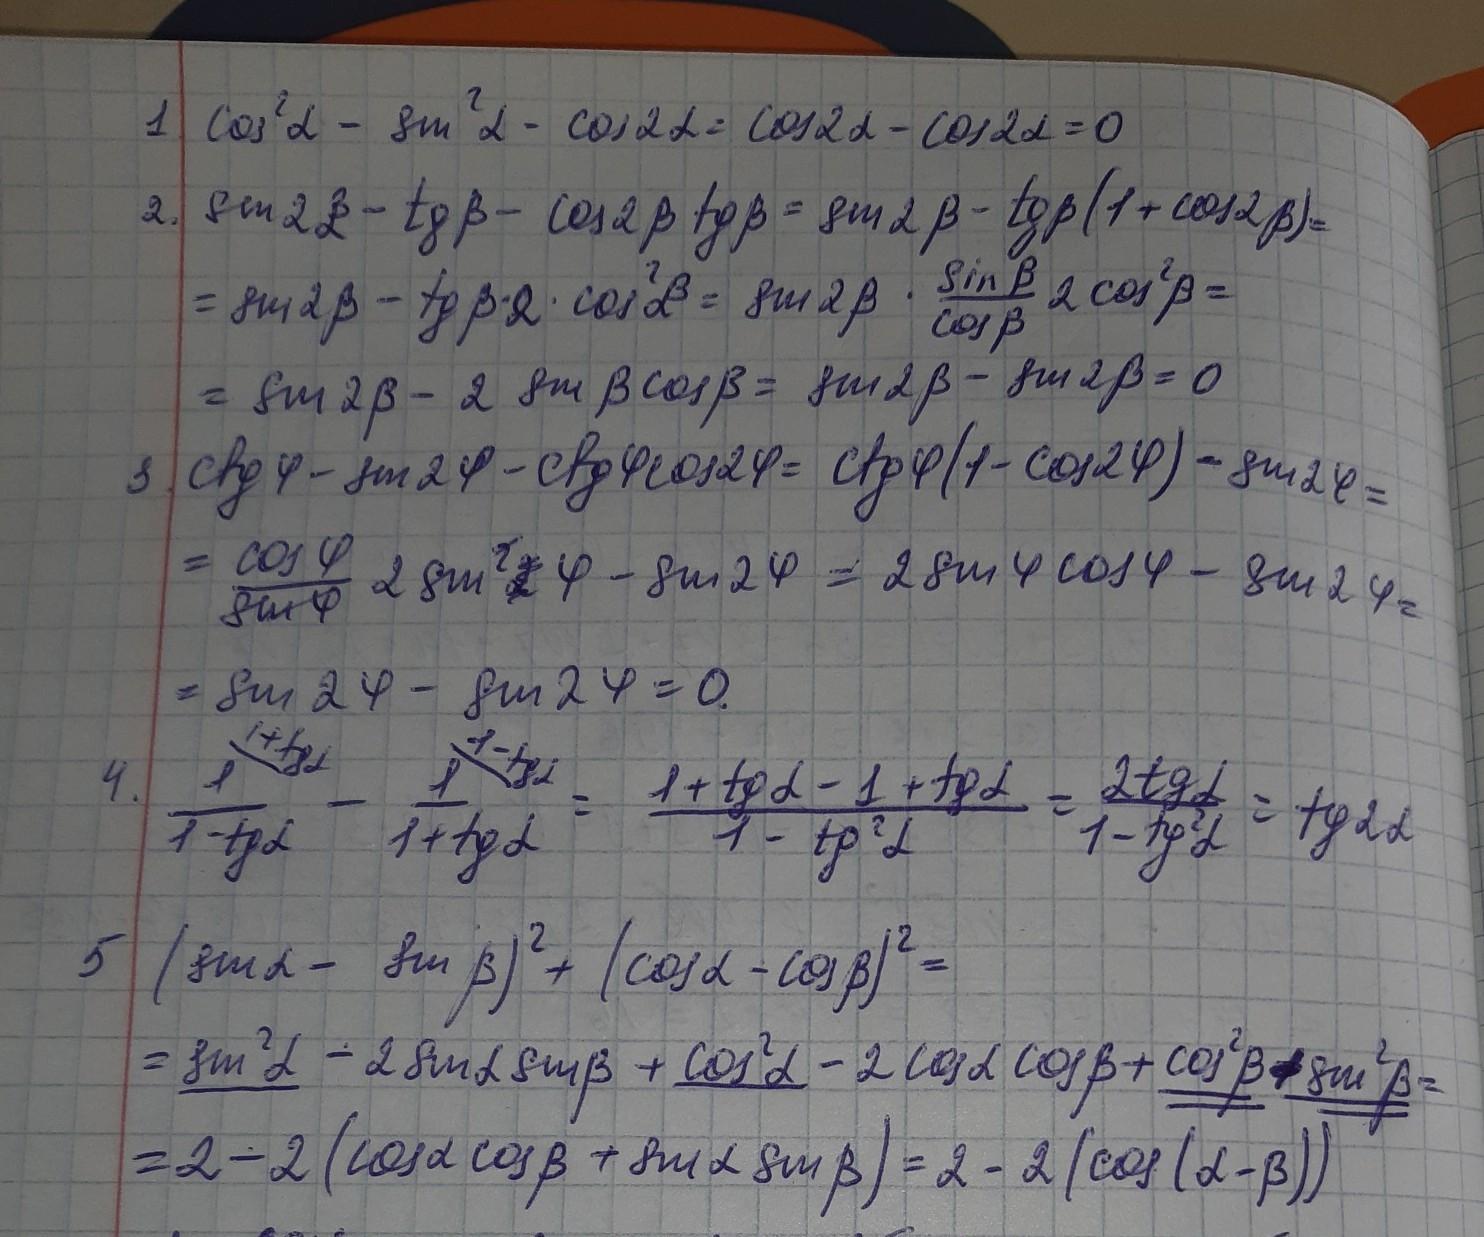 1 cos²α - sin²α - cos2α = cos2α - cos2α = 0
2. sin2β - tgβ - cos2β tgβ = sin2β - tgβ(1 + cos2β) =
= sin2β - tgβ·2·cos²β = sin2β · sinβ/cosβ 2cos²β =
= sin2β - 2 sinβ cosβ = sin2β - sin2β = 0
3. ctgφ - sin2φ - ctgφ cos2φ = ctgφ(1 - cos2φ) - sin2φ =
= cosφ/sinφ 2sin²φ - sin2φ = 2sinφ cosφ - sin2φ =
= sin2φ - sin2φ = 0.
1+tgα 1-tgα
4. 1/(1-tgα) - 1/(1+tgα) = (1+tgα-1+tgα)/(1-tg²α) = 2tgα/(1-tg²α) = tg2α
5 (sinα - sinβ)² + (cosα - cosβ)² =
= sin²α - 2sinα sinβ + cos²α - 2cosα cosβ + cos²β + sin²β =
= 2 - 2(cosα cosβ + sinα sinβ) = 2 - 2(cos(α-β))